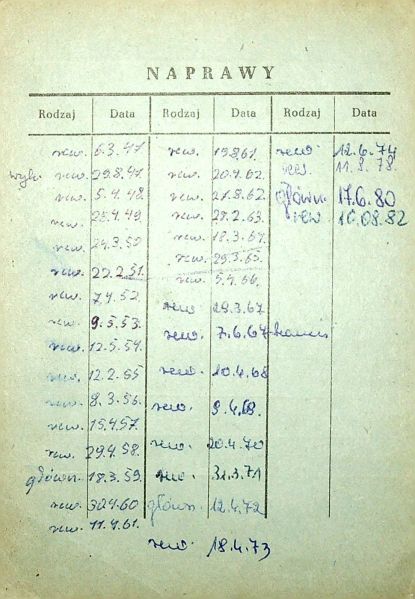 NAPRAWY
Rodzaj Data Rodzaj Data Rodzaj Data
rew. 6.3.47
rew. 29.8.47
rew. 5.4.48.
rew. 25.4.49.
rew. 24.3.50
rew. 22.2.51.
rew. 7.4.52.
rew. 9.5.53.
rew. 12.5.54.
rew. 12.2.55
rew. 8.3.56.
rew. 15.4.57.
rew. 29.4.58.
główn. 18.3.59.
rew. 30.4.60
rew. 11.4.61.
rew. 19.8.61.
rew. 20.4.62.
rew. 27.8.62.
rew. 28.2.63.
rew. 18.3.64.
rew. 29.3.65.
rew. 5.4.66.
rew 28.3.67
rew. 7.6.67
rew. 10.4.68
rew. 9.4.69.
rew. 20.4.70
rew. 31.3.71
główn. 12.4.72
rew 18.4.73
rew. 12.6.74
rew. 11.8.78.
główn. 17.6.80
rew 10.08.82